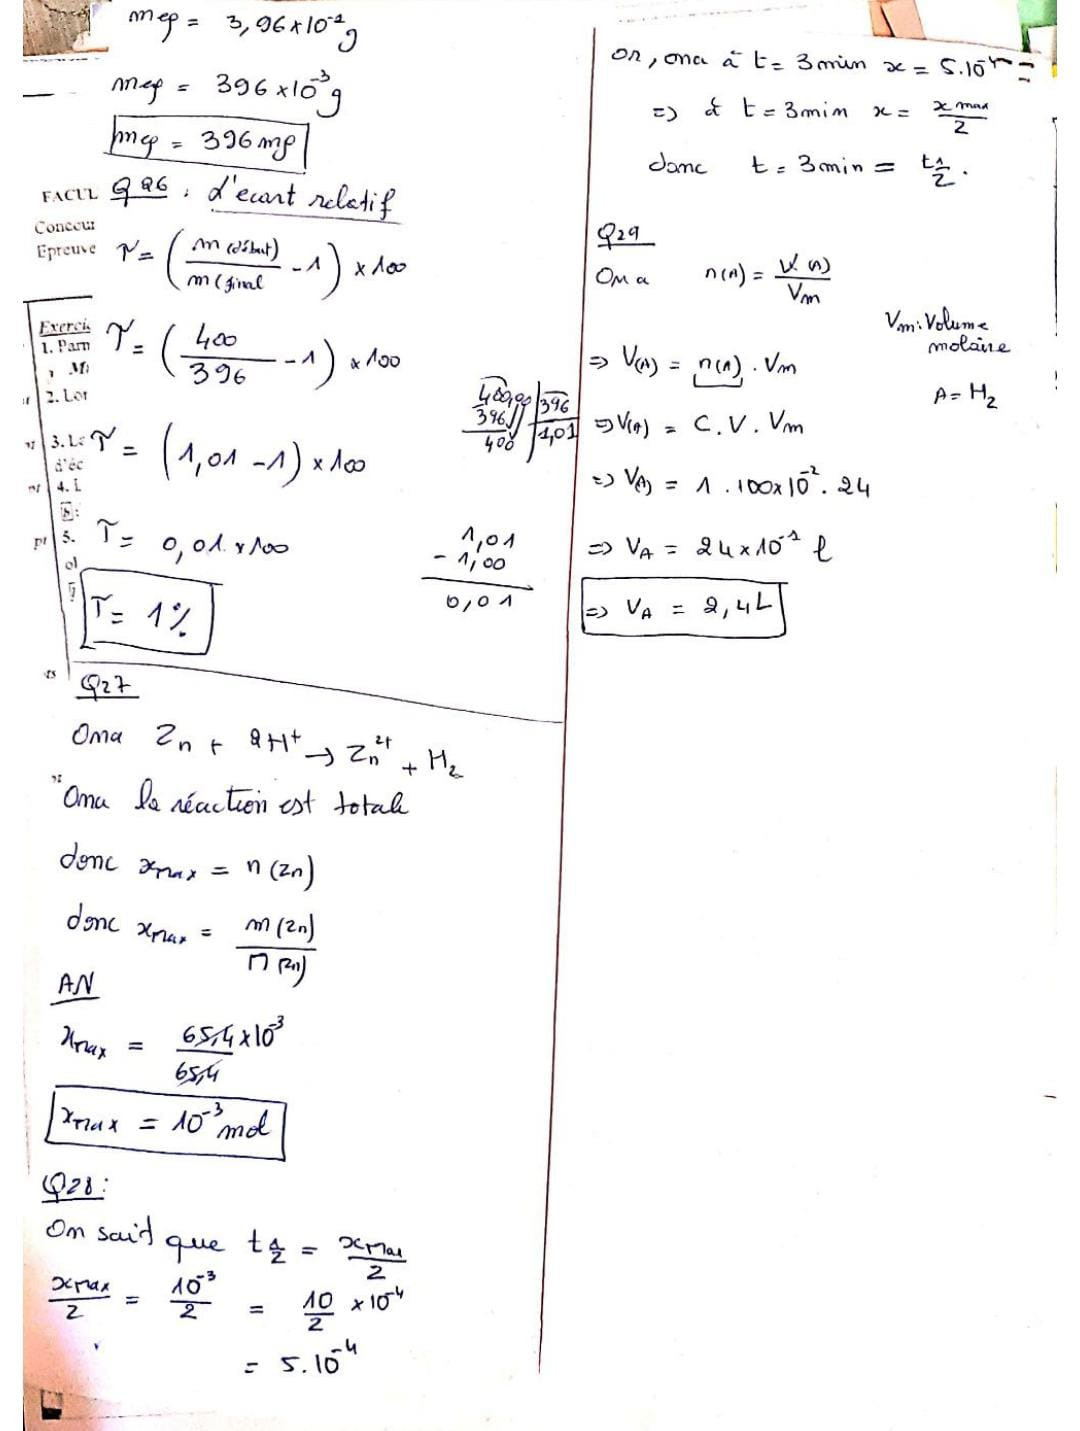 mep = 3,96x10⁻¹ g
mep = 396 x10⁻³ g
mep = 396 mg
FACUL
Q26 : L'ecart relatif
Concour
Epreuve
τ = (m(début)/m(final - 1) x 100
Exerci
1. Parm
τ = (400/396 - 1) x 100
2. Lor
3. L
τ = (1,01 - 1) x 100
400,00 | 396
396 | 1,01
400
d'éc
4. L
5.
τ = 0,01 x 100
1,01
- 1,00
0,01
τ = 1%
Q27
Ona Zn + 2H⁺ → Zn²⁺ + H₂
Ona la réaction est totale
donc xmax = n(Zn)
donc xmax = m(Zn)/M(Zn)
AN
xmax = 65,4x10⁻³/65,4
xmax = 10⁻³ mol
Q28:
On sait que t1/2 = xmax/2
xmax/2 = 10⁻³/2 = 10/2 x10⁻⁴
= 5.10⁻⁴
or, ona à t = 3 min x = 5.10⁻⁴
=> à t = 3min x = xmax/2
donc t = 3min = t1/2.
Q29
Ona n(A) = V(A)/Vm
Vm: Volume
molaire
=> V(A) = n(A) . Vm
A = H₂
=> V(A) = C.V.Vm
=> V(A) = 1 . 100x10⁻² . 24
=> VA = 24x10⁻¹ l
=> VA = 2,4L